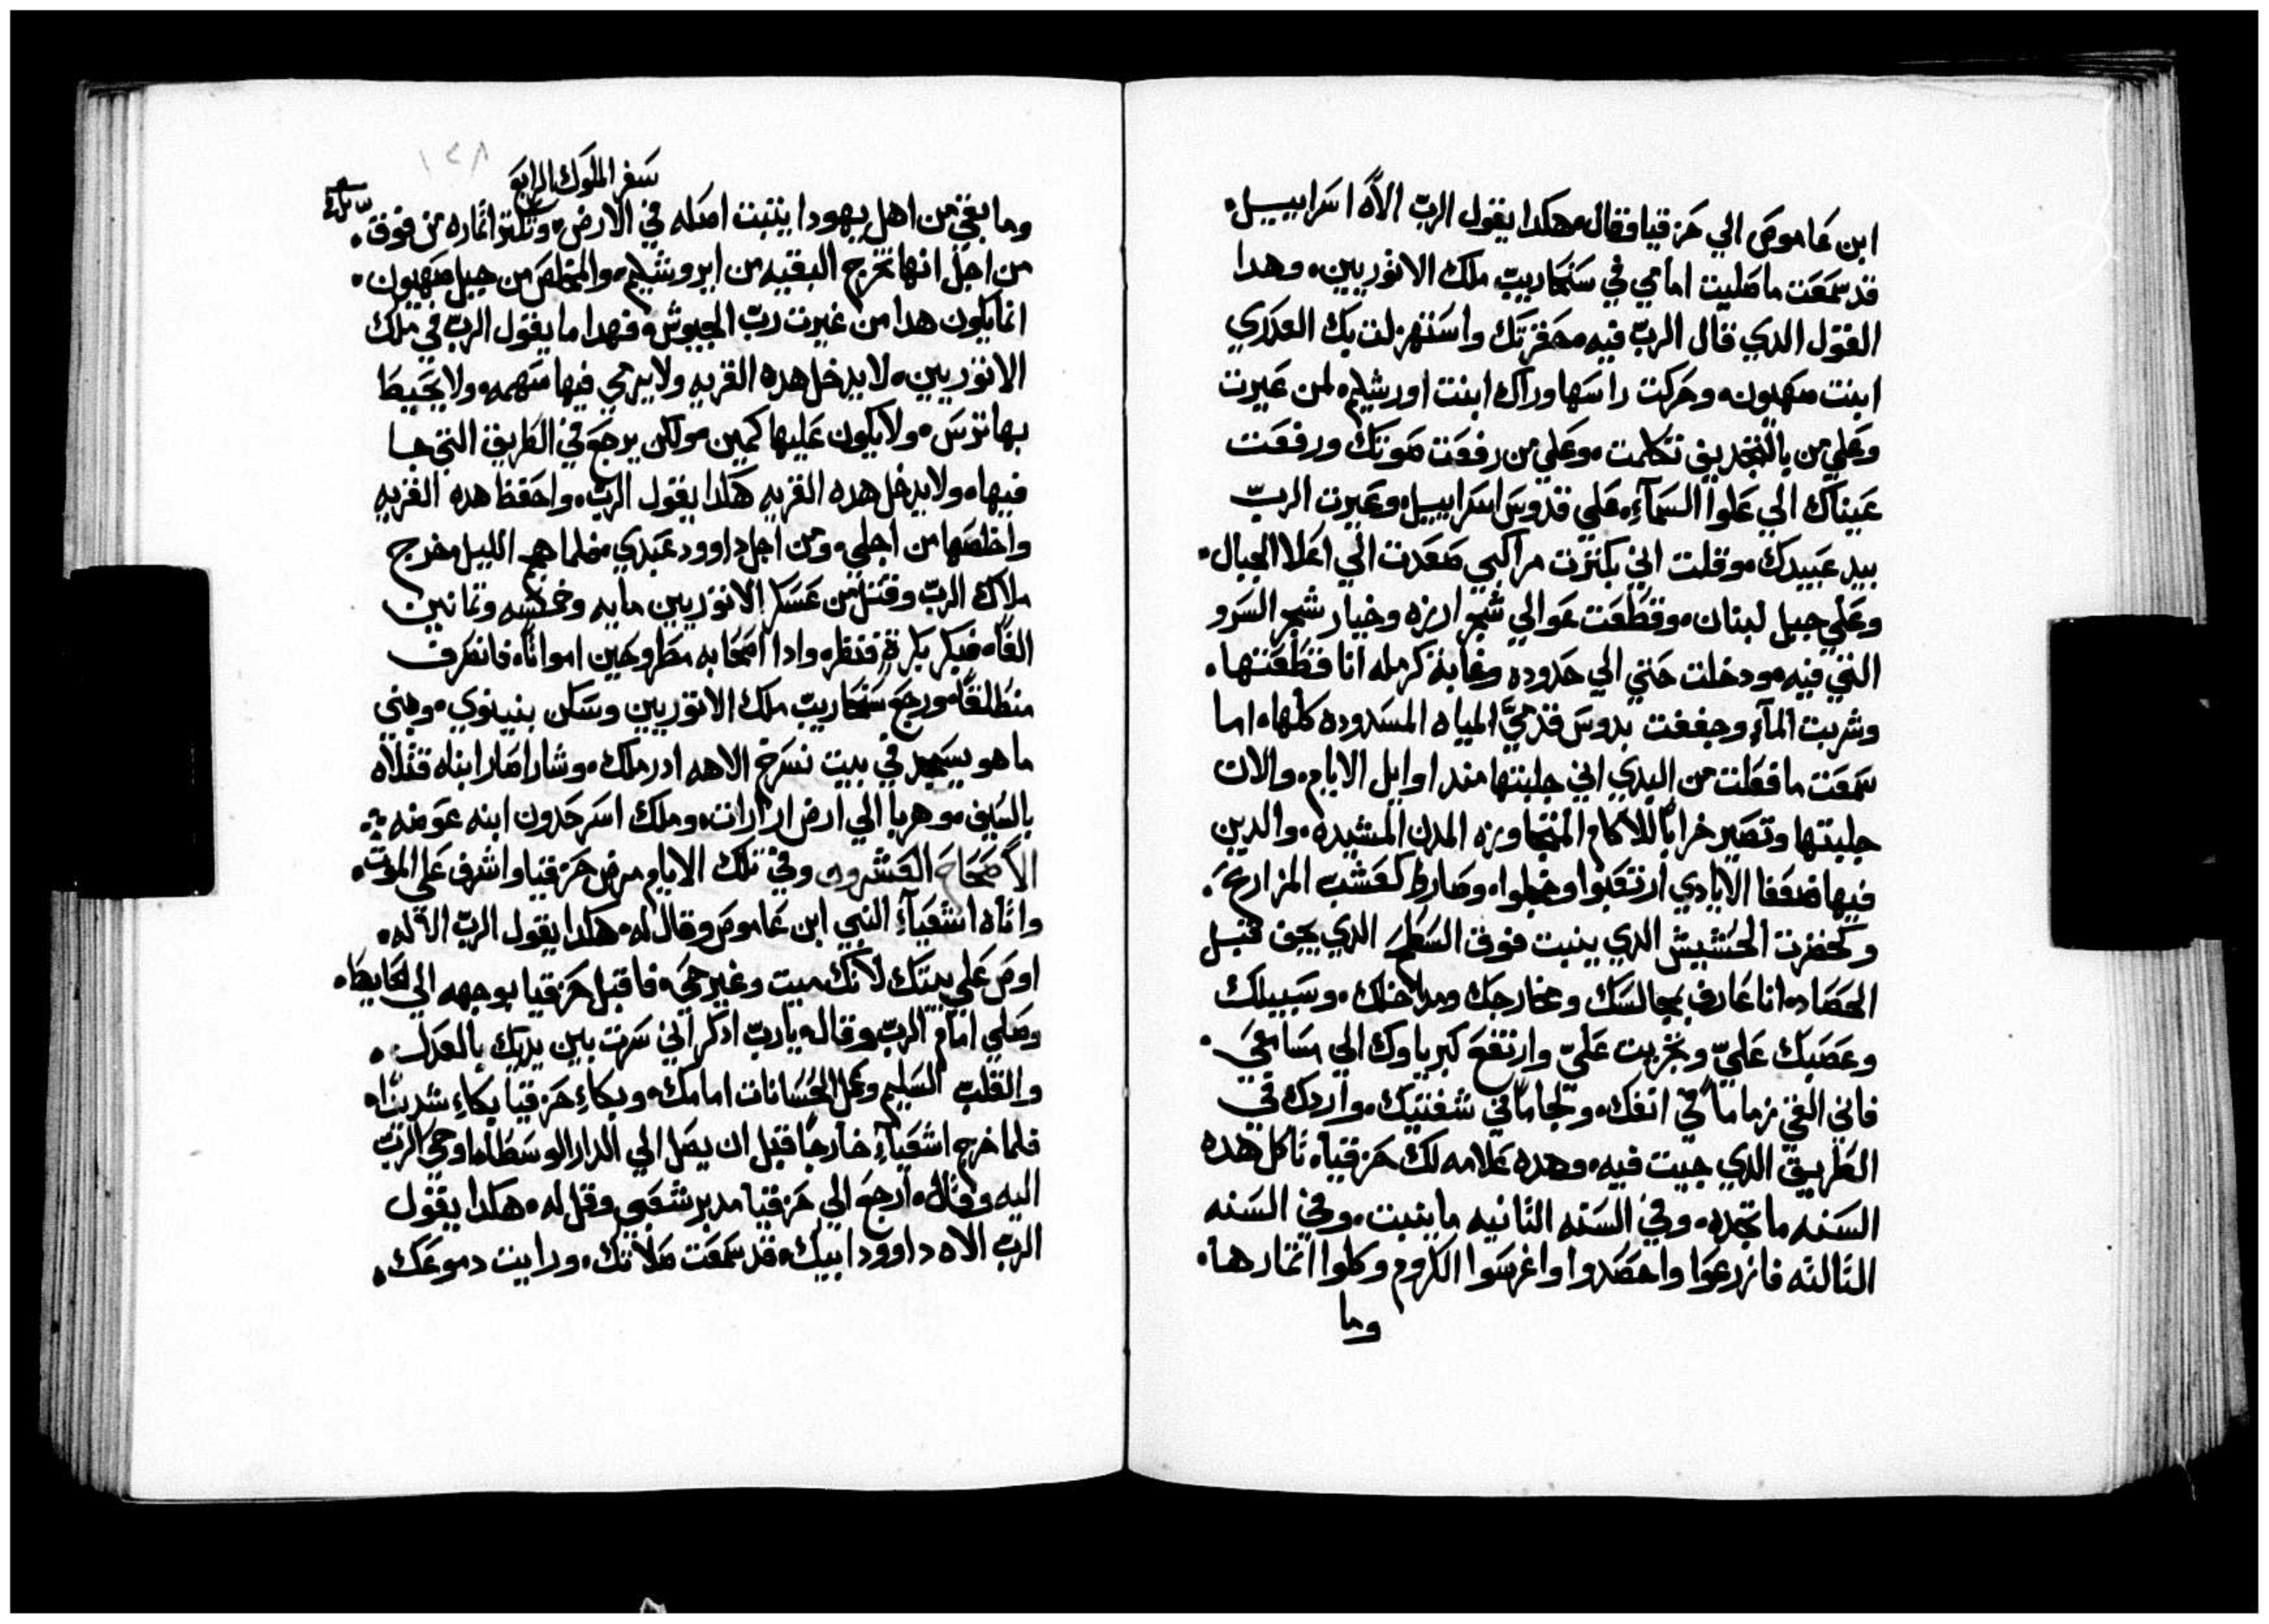 ابن عاموص الي حزقيا وقال هكدا يقول الرب الاه اسراييل
قد سمعت ما صليت امامي في سنحاريب ملك الاتوريين وهدا
القول الدي قال الرب فيه محقرتك واستهزلت بك العدري
ابنت صهيون وحركت راسها وراك ابنت اورشليم لمن عيرت
وعلي من بالتجديف تكلمت وعلي من رفعت صوتك ورفعت
عيناك الي علوا السمآء علي قدوس اسراييل وعيرت الرب
بيد عبيدك وقلت اني بكترت مراكبي صعدت الي اعلا الجبال
وعلي جبل لبنان وقطعت عوالي شجر ارزه وخيار شجر السرو
التي فيه ودخلت حتي الي حدوده وغابة كرمله انا قطعتها
وشربت المآء وجففت بدوس قدمي المياه المسدوده كلها اما
سمعت ما فعلت من البدي اني جلبتها مند اوايل الايام والان
جلبتها وتصير خرابا للاكام المتجاوره المدن المشيده والدين
فيها ضعفا الايادي ارتعبوا وخجلوا وصاروا كعشب المزارع
وكخضرت الحشيش الدي ينبت فوق السطح الدي يجف قبل
الحصاد انا عارف بمجالسك ومخارجك ومداخلك وسبيلك
وعصبك علي وتجربت علي وارتفع كبرياوك الي مسامعي
فاني القي زماما في انفك ولجاما في شفتيك واردك في
الطريق الدي جيت فيه وهده علامه لك حزقيا تاكل هده
السنه ما تجده وفي السنه التانيه ما ينبت وفي السنه
التالته فازرعوا واحصدوا واغرسوا الكروم وكلوا اتمارها
وما
١٢٨
سفر الملوك الرابع
وما بقي من اهل يهودا ينبت اصله في الارض وتكتر اتماره من فوق
من اجل انها تخرج البقيه من ايروشليم والمخلص من جبل صهيون
انما يكون هدا من غيرت رب الجيوش فهدا ما يقول الرب في ملك
الاتوريين لا يدخل هده القريه ولا يرمي فيها سهمه ولا يحيط
بها ترس ولا يكون عليها كمين ولكن يرجع في الطريق التي جا
فيها ولا يدخل هده القريه هكدا يقول الرب واحفظ هده القريه
واخلصها من اجلي ومن اجل داوود عبدي فلما هجم الليل خرج
ملاك الرب وقتل من عسكر الاتوريين مايه وخمسه وتمانين
الفا فبكر بكرة فنظر وادا اصحابه مطروحين امواتا فانصرف
منطلقا ورجع سنحاريب ملك الاتوريين وسكن بنينوي وفي
ما هو يسجد في بيت نسرخ الاهه ادرملك وشاراصار ابناه قتلاه
بالسيف وهربا الي ارض اراراات وملك اسرحدون ابنه عوضه
الاصحاح العشرون وفي تلك الايام مرض حزقيا واشرف علي الموت
واتاه اشعيآء النبي ابن عاموص وقال له هكدا يقول الرب الاله
اوص علي بيتك لانك ميت وغير حي فاقبل حزقيا بوجهه الي الحايط
وصلي امام الرب وقال يارب ادكر اني سرت بين يديك بالعدل
والقلب السليم وعمل الحسنات امامك وبكاء حزقيا بكاء شديدا
فلما خرج اشعيآء خارجا قبل ان يصل الي الدار الوسطا اوحي الرب
اليه وقال ارجع الي حزقيا مدبر شعبي وقل له هكدا يقول
الرب الاه داوود ابيك قد سمعت صلاتك ورايت دموعك